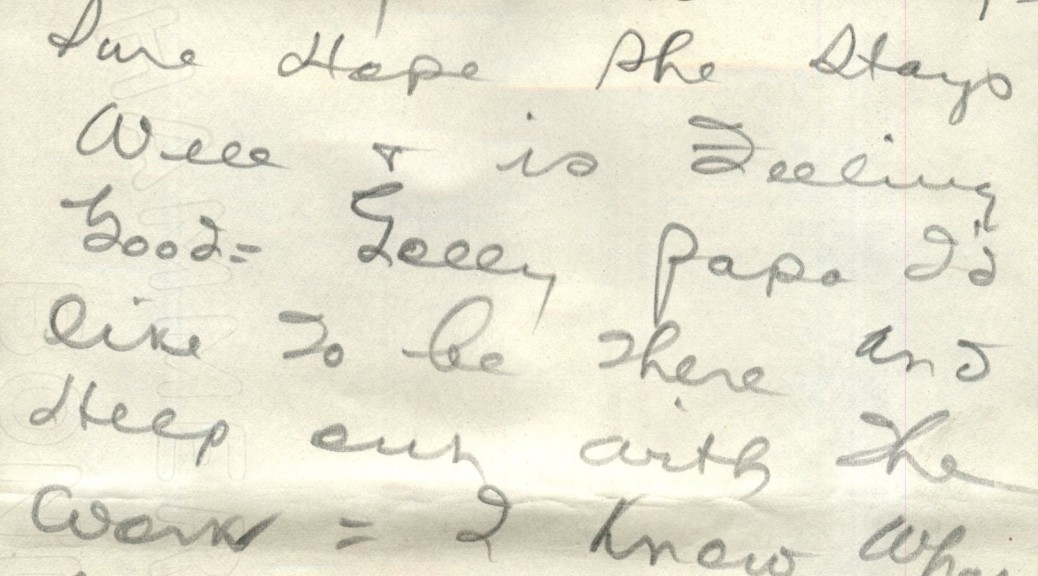 Sure Hope she Stays
Well & is Feeling
Good = Golly Papa I'd
like To be There and
Help out with The
Work = I know